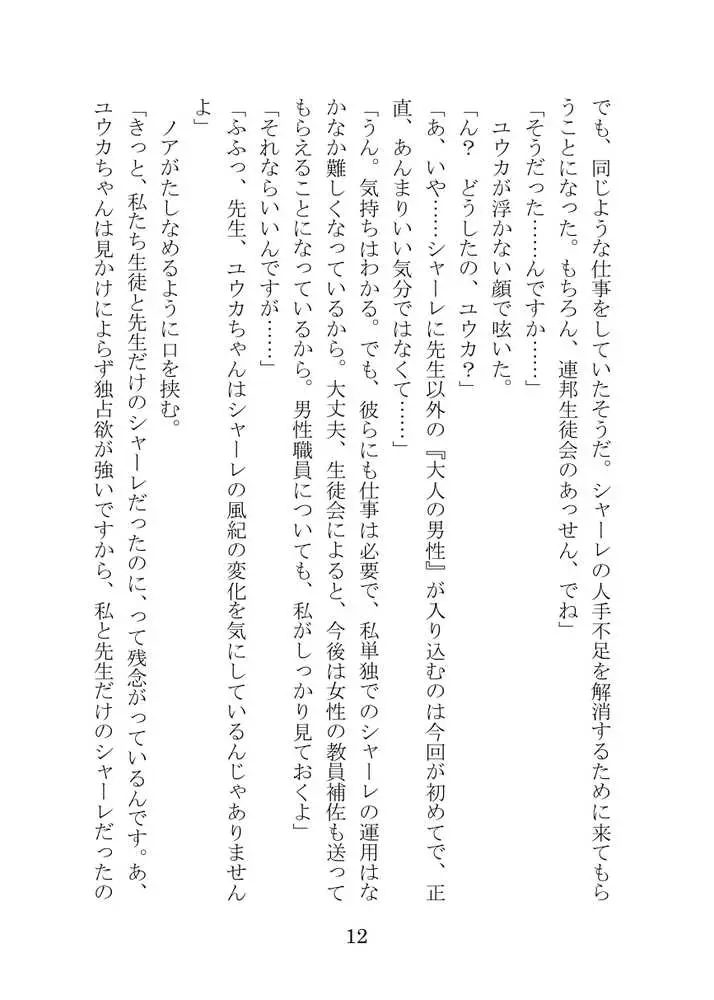 でも、同じような仕事をしていたそうだ。シャーレの人手不足を解消するために来てもら
うことになった。もちろん、連邦生徒会のあっせん、でね」
「そうだった……んですか……」
ユウカが浮かない顔で呟いた。
「ん？　どうしたの、ユウカ？」
「あ、いや……シャーレに先生以外の『大人の男性』が入り込むのは今回が初めてで、正
直、あんまりいい気分ではなくて……」
「うん。気持ちはわかる。でも、彼らにも仕事は必要で、私単独でのシャーレの運用はな
かなか難しくなっているから。大丈夫、生徒会によると、今後は女性の教員補佐も送って
もらえることになっているから。男性職員についても、私がしっかり見ておくよ」
「それならいいんですが……」
「ふふっ、先生、ユウカちゃんはシャーレの風紀の変化を気にしているんじゃありません
よ」
ノアがたしなめるように口を挟む。
「きっと、私たち生徒と先生だけのシャーレだったのに、って残念がっているんです。あ、
ユウカちゃんは見かけによらず独占欲が強いですから、私と先生だけのシャーレだったの
12